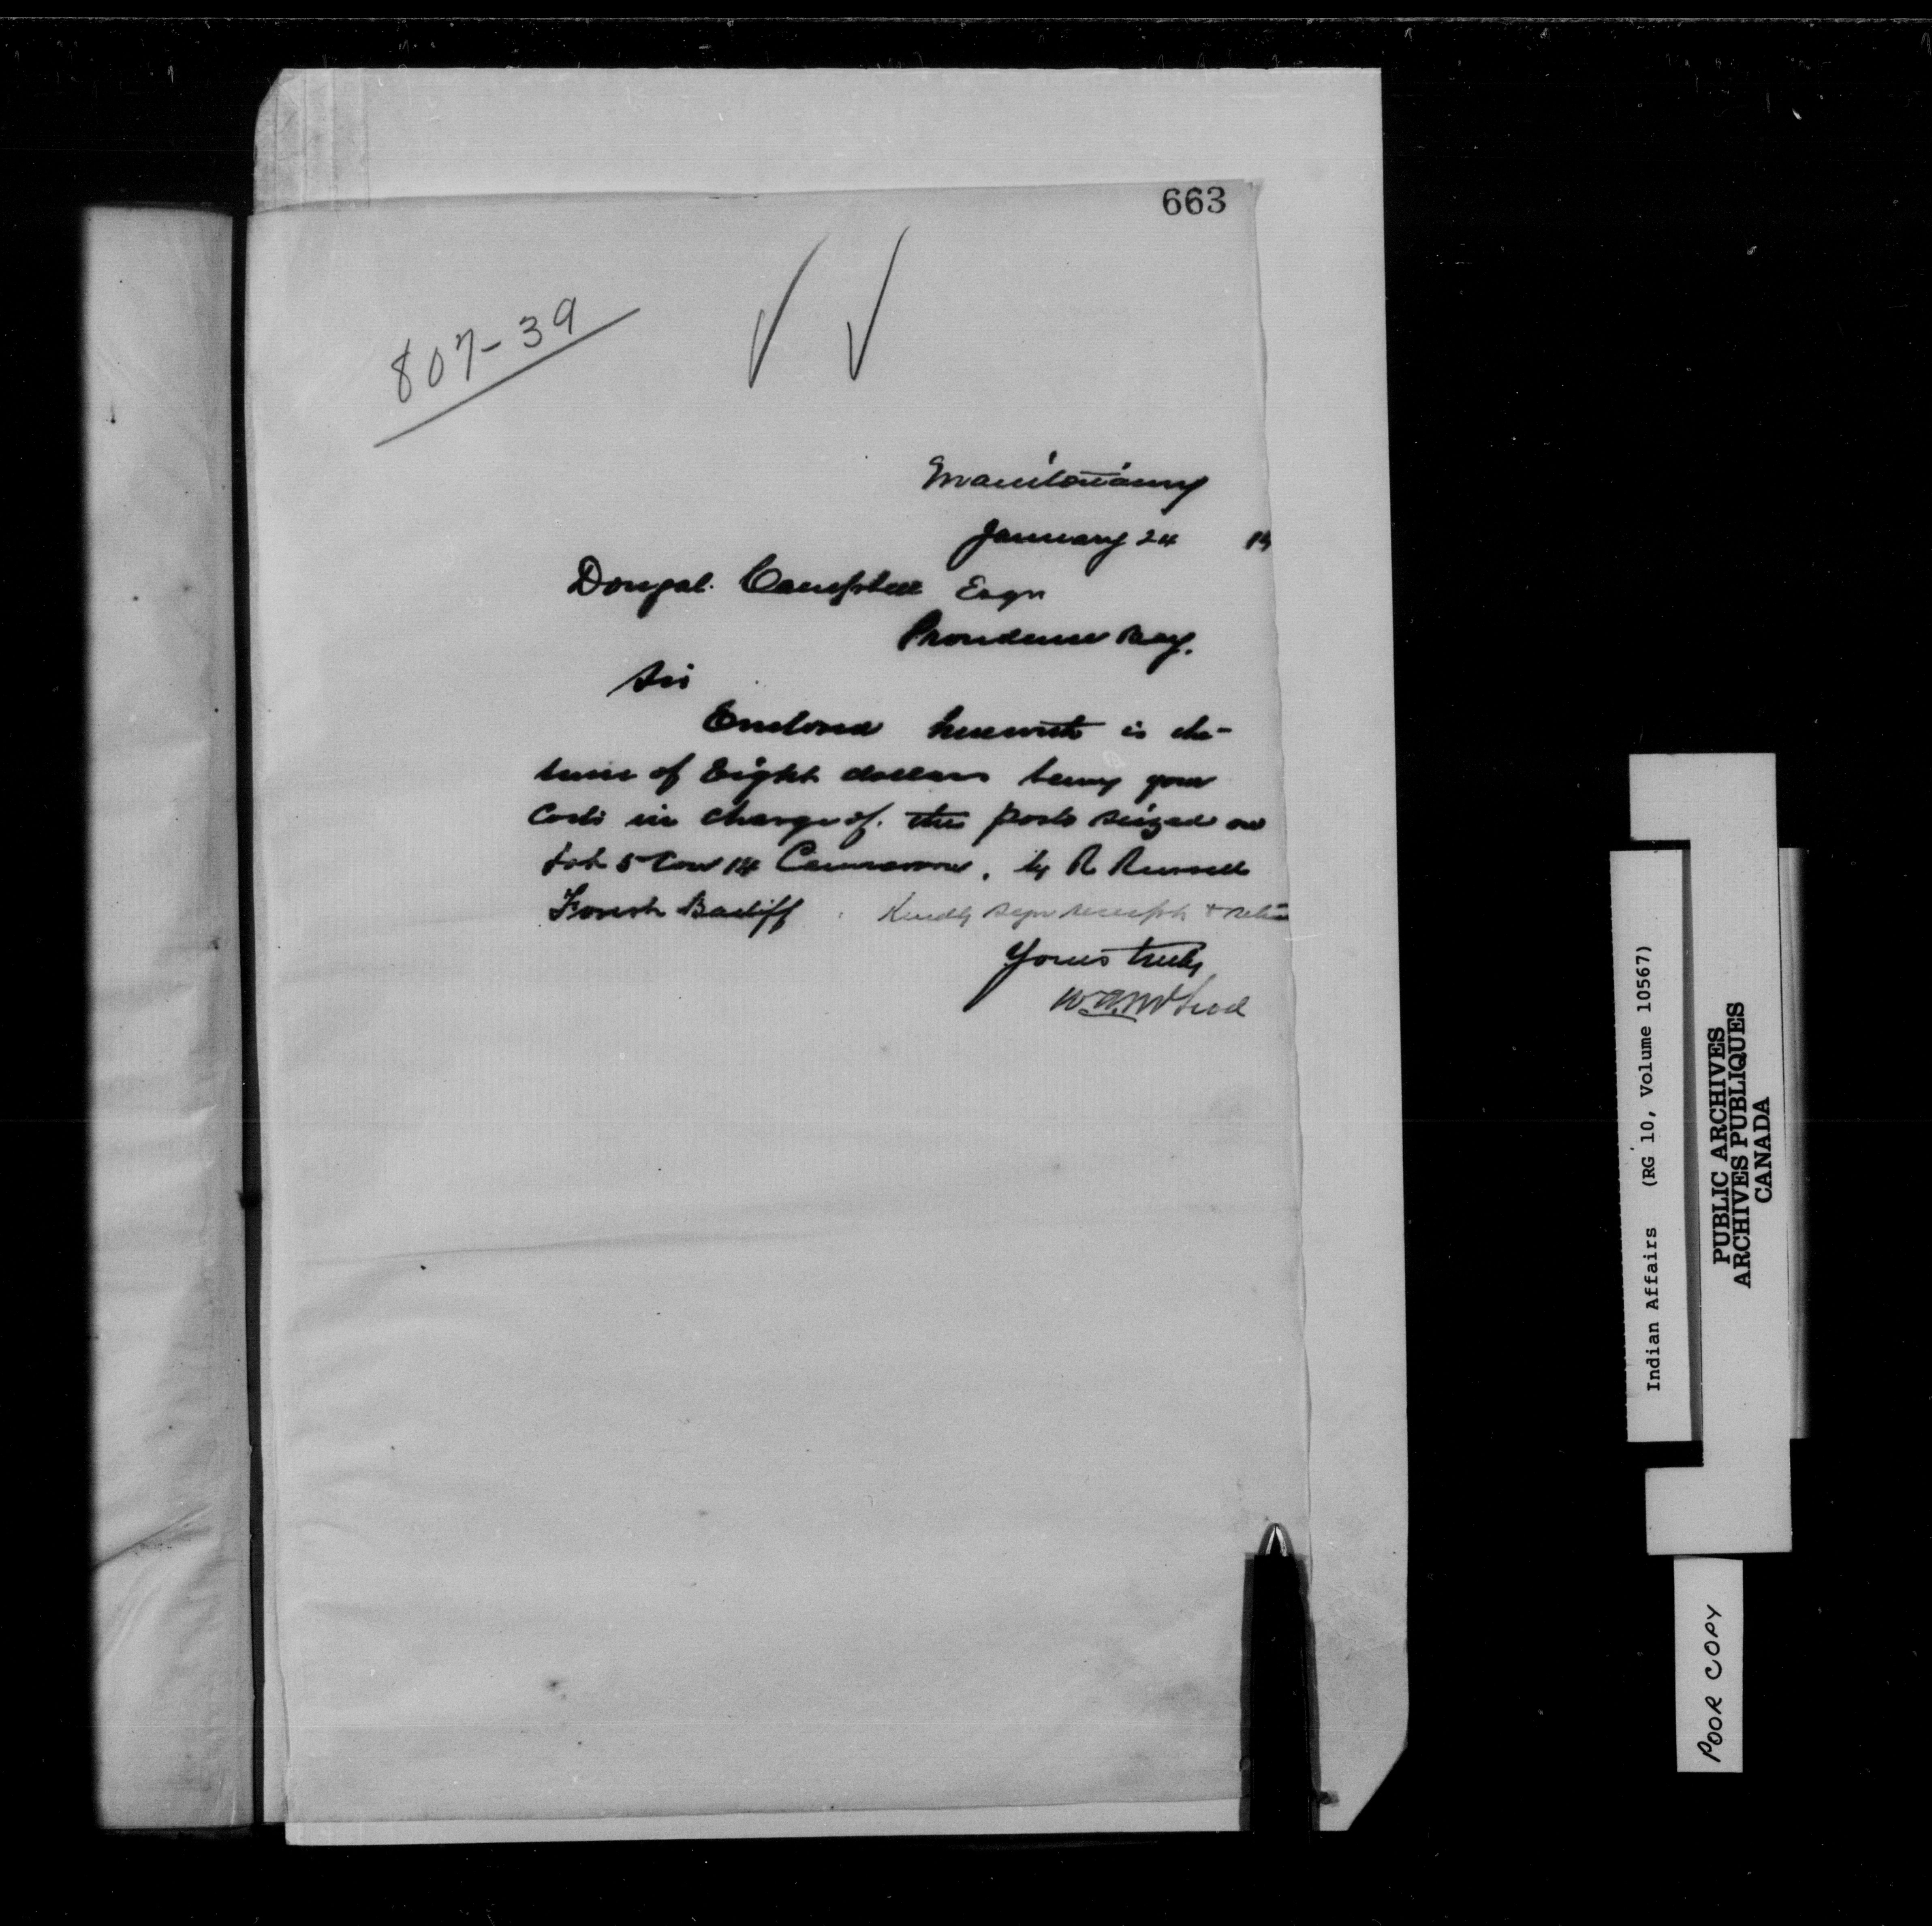 663
807-39
Manitowaning
January 24 19
Dougal Campbell Esqr
Providence Bay.
Sir
Enclosed herewith is the
sum of Eight dollars being your
Costs in charge of the posts seized on
Lot 5 Con 14 Carnarvon, by R Russell
Forest Bailiff. Kindly sign receipt & return
Yours truly
Indian Affairs (RG 10, Volume 10567)
PUBLIC ARCHIVES
ARCHIVES PUBLIQUES
CANADA
POOR COPY